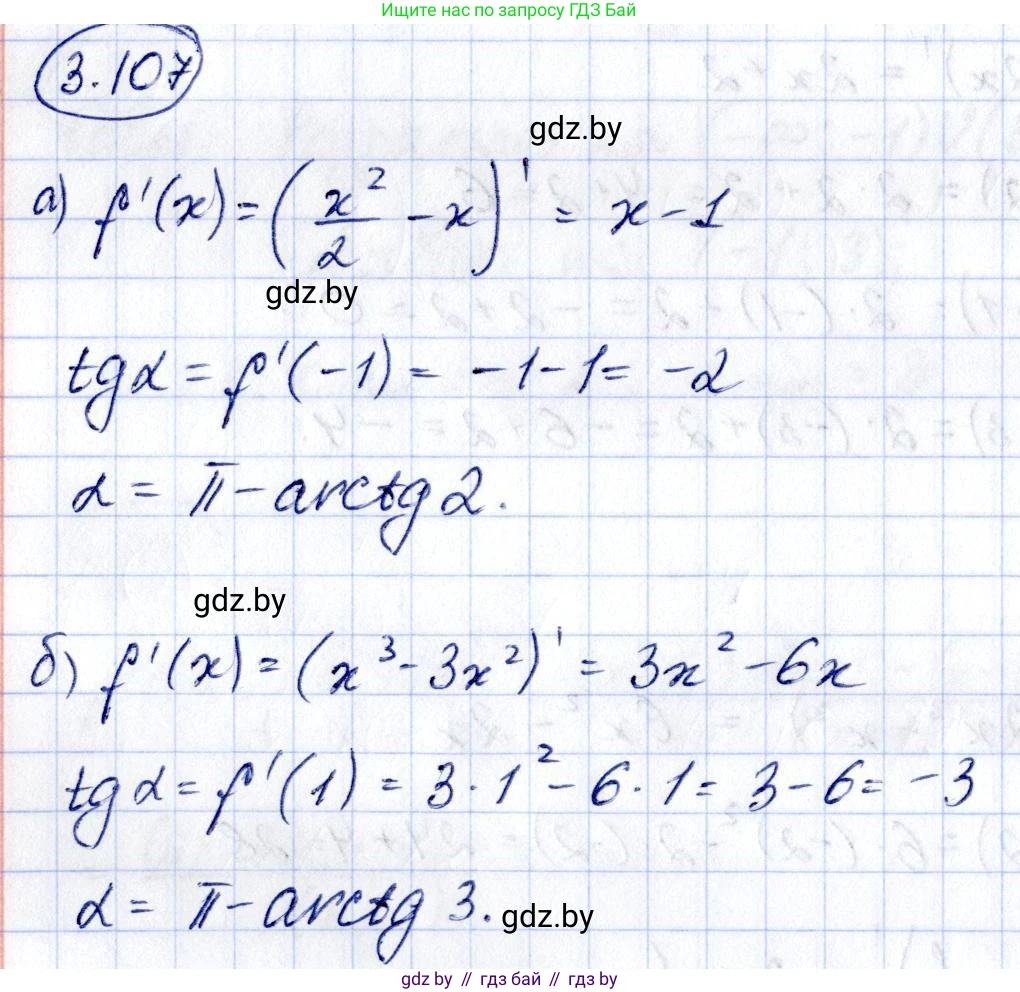 Ищите нас по запросу ГДЗ Бай
3.107
gdz.by
а) f'(x) = (x²/2 - x)' = x - 1
gdz.by
tgα = f'(-1) = -1 - 1 = -2
α = π - arctg 2.
gdz.by
б) f'(x) = (x³ - 3x²)' = 3x² - 6x
tgα = f'(1) = 3·1² - 6·1 = 3 - 6 = -3
α = π - arctg 3.
gdz.by
gdz.by // гдз бай // гдз by